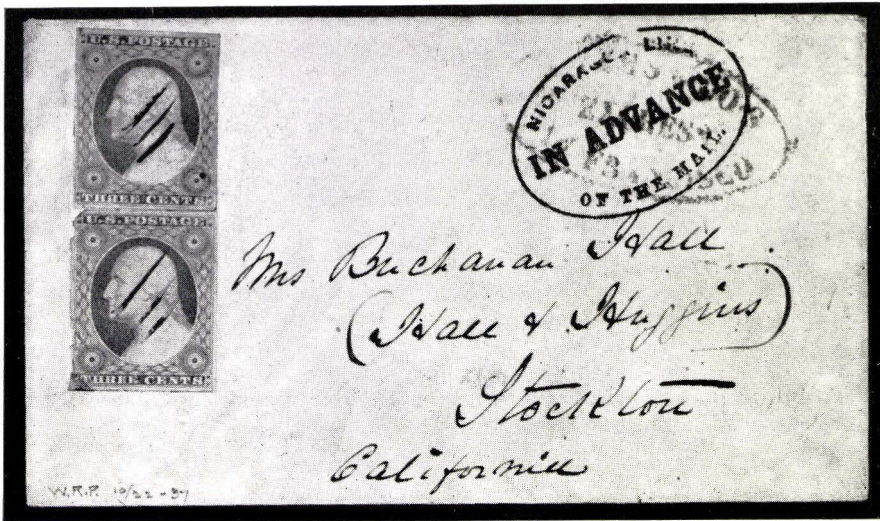 U.S. POSTAGE
THREE CENTS
U.S. POSTAGE
THREE CENTS
NICARAGUA LINE
IN ADVANCE
OF THE MAIL.
Mrs Buchanan Hall
(Hall & Huggins)
Stockton
California
W.R.P. 10/22-37